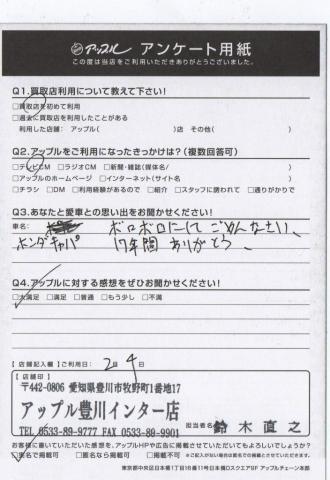 アップル アンケート用紙
この度は当店をご利用いただきありがとうございました。
Q1.買取店利用について教えて下さい!
□買取店を初めて利用
□過去に買取店を利用したことがある
利用した店舗: アップル( )店 その他( )
Q2.アップルをご利用になったきっかけは?(複数回答可)
□テレビCM □ラジオCM □新聞・雑誌(媒体名/ )
□アップルのホームページ □インターネット(サイト名 )
□チラシ □DM □利用経験があるので □紹介 □スタッフに誘われて □通りがかりで
Q3.あなたと愛車との思い出をお聞かせください!
車名: ボロボロにしてごめんなさい、
ホンダキャパ 17年間ありがとう、
Q4.アップルに対する感想をぜひお聞かせください!
□大満足 □満足 □普通 □もう少し □不満
【店舗記入欄】ご利用日: 2月4日
【店舗印】
〒442-0806 愛知県豊川市牧野町1番地17
アップル豊川インター店
TEL 0533-89-9777 FAX 0533-89-9901
担当者名 鈴木直之
お客様に書いていただいた感想を、アップルHPや広告に掲載させていただいてもよろしいでしょうか?
□実名で掲載可 □匿名なら掲載可 □掲載不可 ※ご記入がない場合は匿名での掲載とさせていただきます。
東京都中央区日本橋1丁目16番11号日本橋DスクエアSF アップルチェーン本部